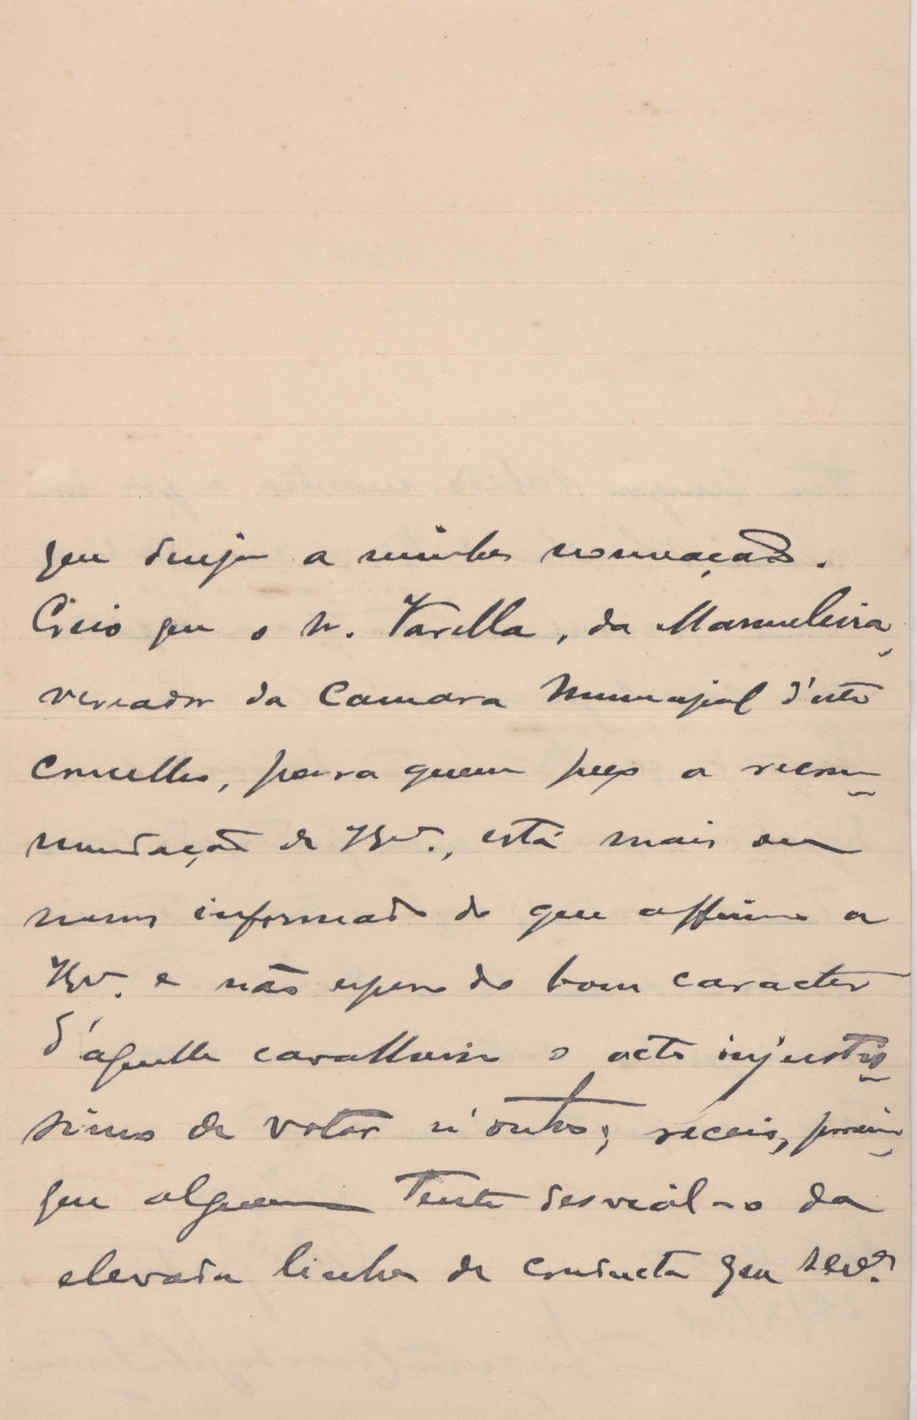 que dirija a minha nomeação.
Creio que o Sr. Varella, da Marmeleira,
vereador da Camara Municipal d'este
concelho, para quem peço a recom-
mendação de V., está mais ou
menos informado do que affirmo a
V. e não espero do bom caracter
d'aquelle cavalheiro o acto injustis-
simo de votar n'outro; receio, porém,
que alguem tente desvial-o da
elevada linha de conducta que